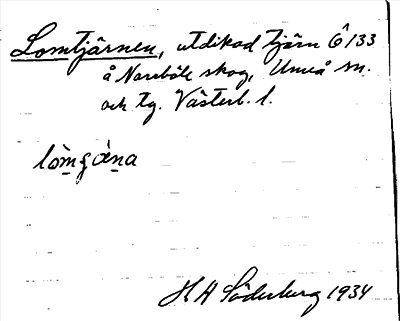 Lomtjärnen, utdikad tjärn Ô 133
å Norrböle skog, Umeå sn.
och tg. Västerb. l.
lò̱mgà̱̱na
H A Söderberg 1934